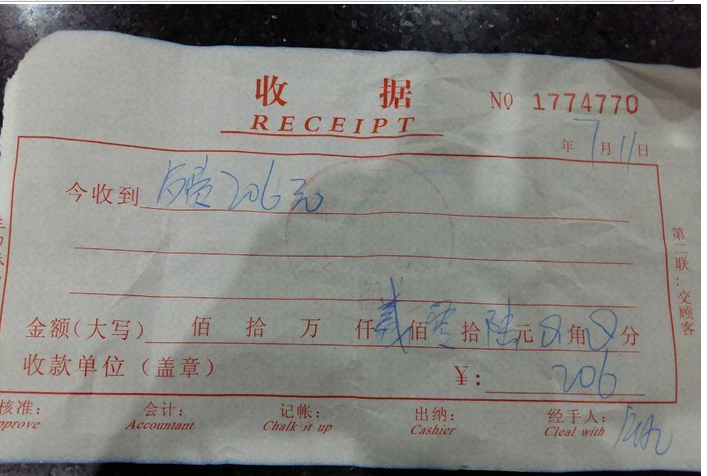 收 据
RECEIPT
NO 1774770
年 7 月 11 日
今收到 206元
第二联：交顾客
金额（大写） 佰 拾 万 仟 贰 佰 零 拾 陆 元 0 角 0 分
收款单位（盖章） ￥: 206
核准： 会计： 记帐： 出纳： 经手人：
pprove Accountant Chalk it up Cashier Cleal with